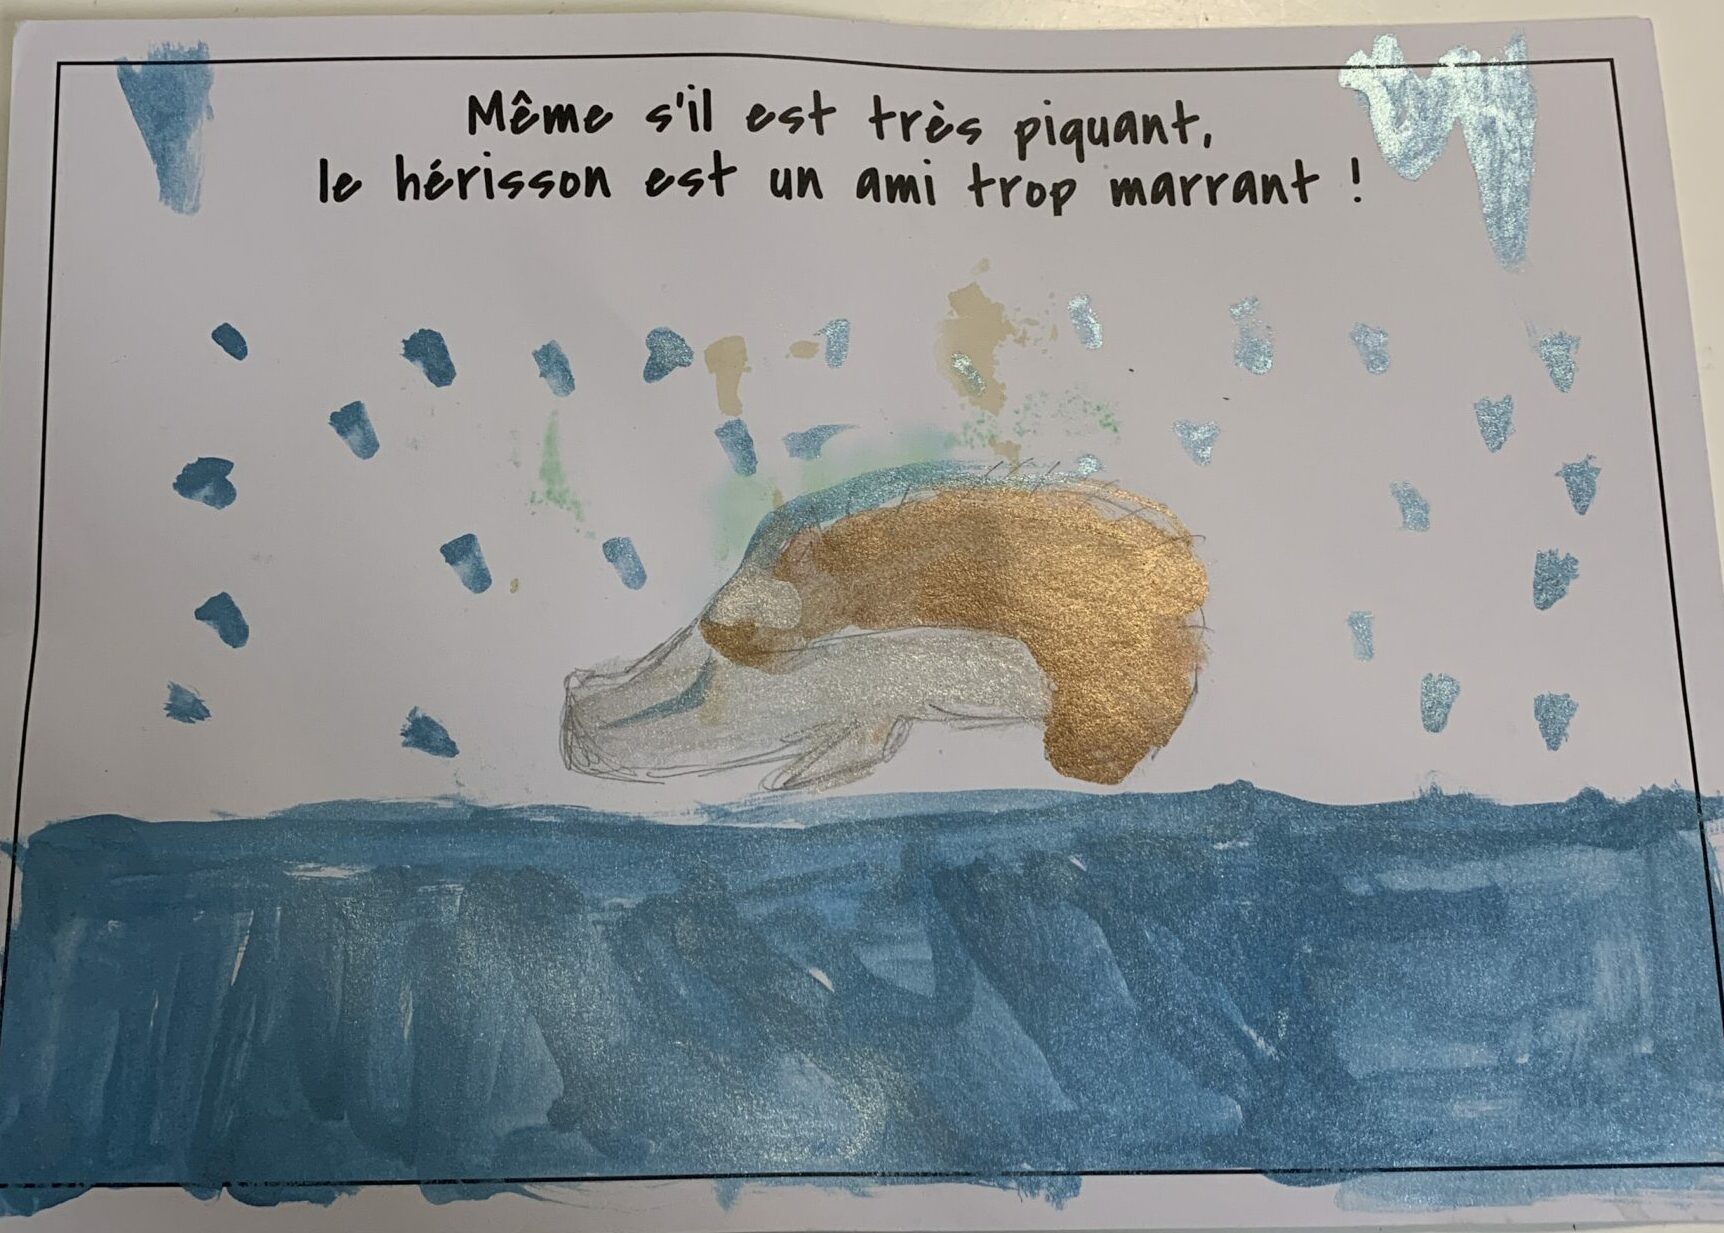 Même s'il est très piquant,
le hérisson est un ami trop marrant !